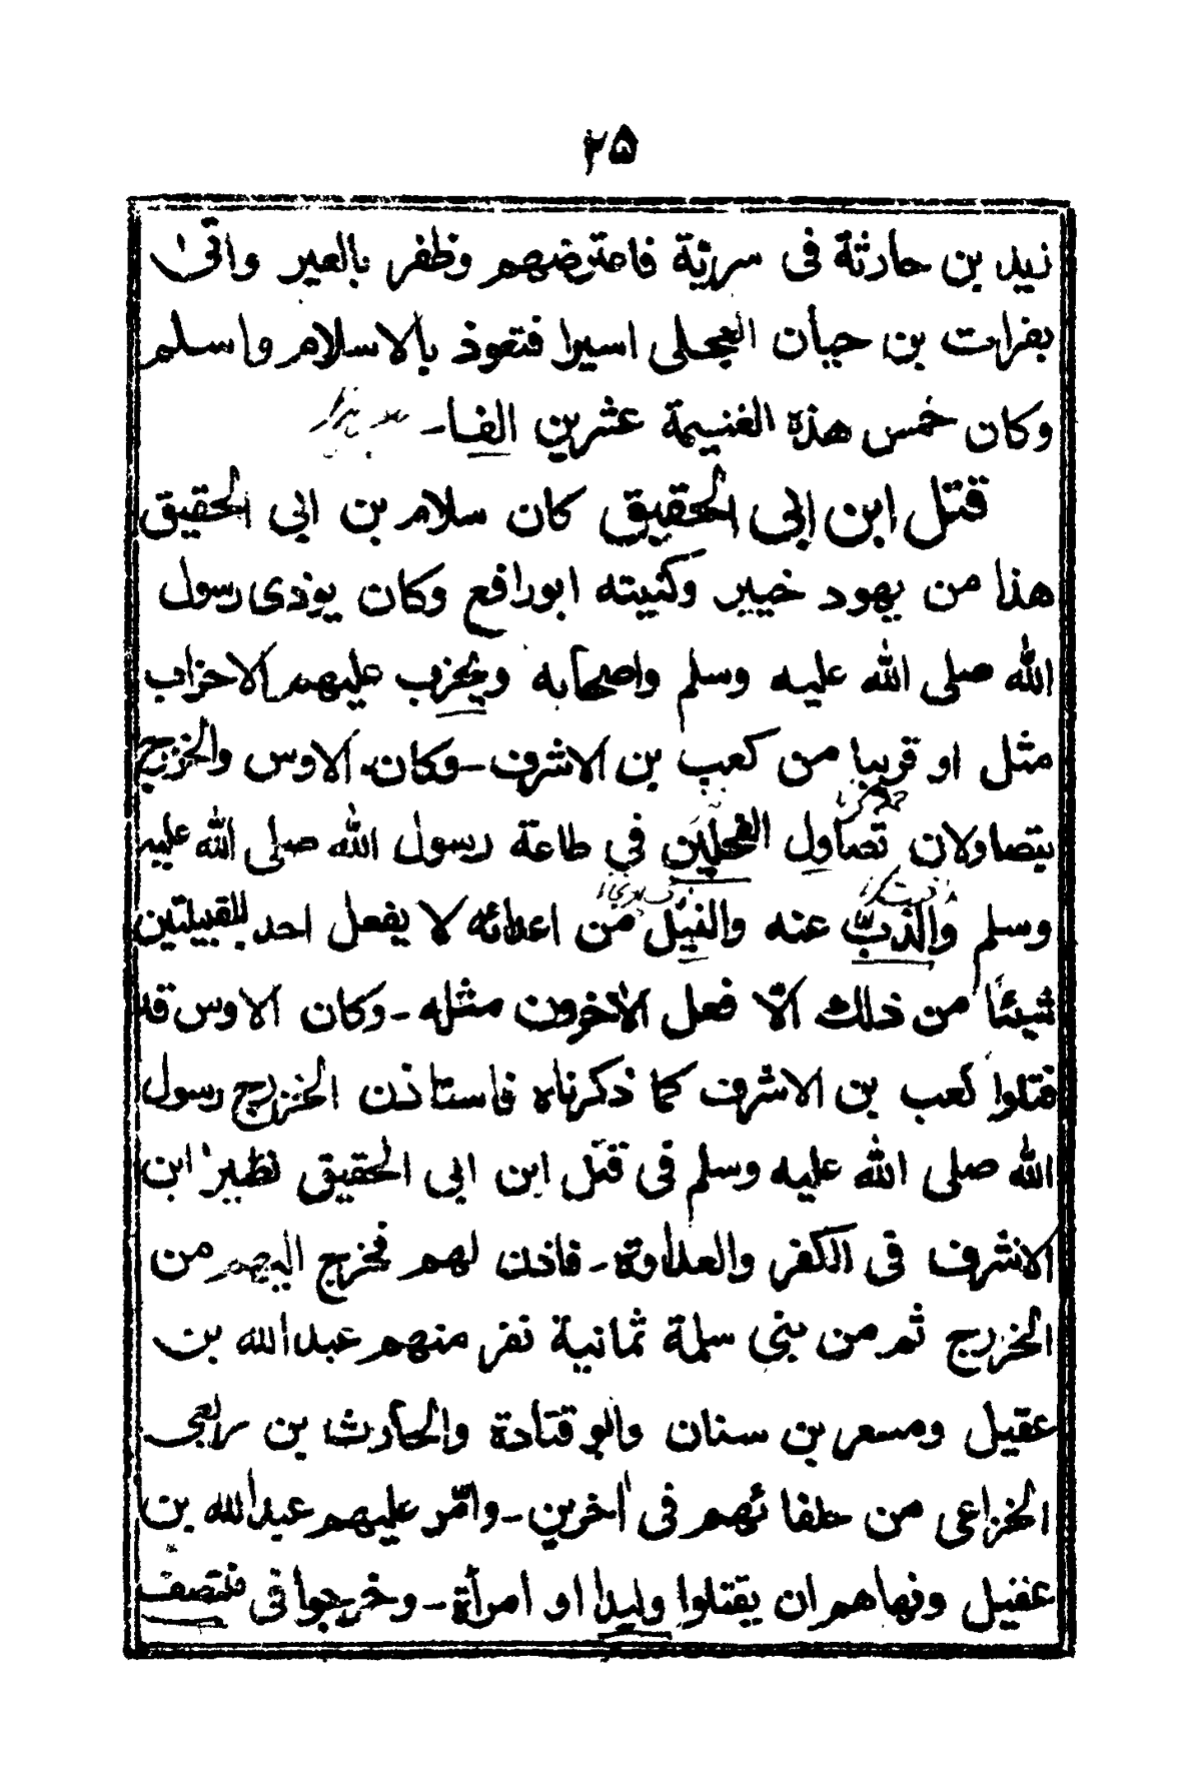 ۲۵
زيد بن حارثة فى سرية فاعترضهم وظفر بالعير واتى
بفرات بن حيان العجلى اسيرا فتعوذ بالاسلام واسلم
وكان خمس هذه الغنيمة عشرين الفا-
قتل ابن ابى الحقيق كان سلام بن ابى الحقيق
هذا من يهود خيبر وكنيته ابورافع وكان يوذى رسول
الله صلى الله عليه وسلم واصحابه ويحزب عليهم الاحزاب
مثل او قريبا من كعب بن الاشرف-وكان الاوس والخزرج
يتصاولان تصاول الفحلين في طاعة رسول الله صلى الله عليه
وسلم والذب عنه والنيل من اعدائه لا يفعل احد للقبيلتين
شيئا من ذلك الا فعل الآخرون مثله-وكان الاوس قد
قتلوا كعب بن الاشرف كما ذكرناه فاستاذن الخزرج رسول
الله صلى الله عليه وسلم فى قتل ابن ابى الحقيق نظير ابن
الاشرف فى الكفر والعداوة-فاذن لهم فخرج اليهم من
الخزرج ثم من بنى سلمة ثمانية نفر منهم عبدالله بن
عقيل ومسعر بن سنان وابو قتادة والحارث بن ربعى
الخزاعى من حلفائهم فى آخرين-وامّر عليهم عبدالله بن
عفيل ونهاهم ان يقتلوا وليدا او امرأة-وخرجوا فى منتصف